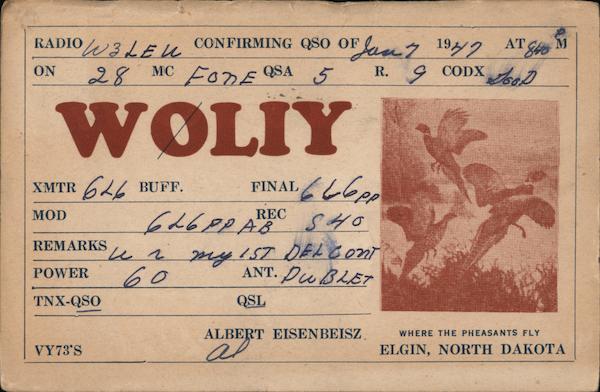 RADIO W3LEU CONFIRMING QSO OF Jan 7 1947 AT 840 P M
ON 28 MC FONE QSA 5 R. 9 CODX GooD
WØLIY
XMTR 6L6 BUFF. FINAL 6L6 PP
MOD 6L6 PP AB REC S40
REMARKS U R my 1ST DEL CONT
POWER 60 ANT. DUBLET
TNX-QSO QSL
ALBERT EISENBEISZ
VY73'S Al
WHERE THE PHEASANTS FLY
ELGIN, NORTH DAKOTA